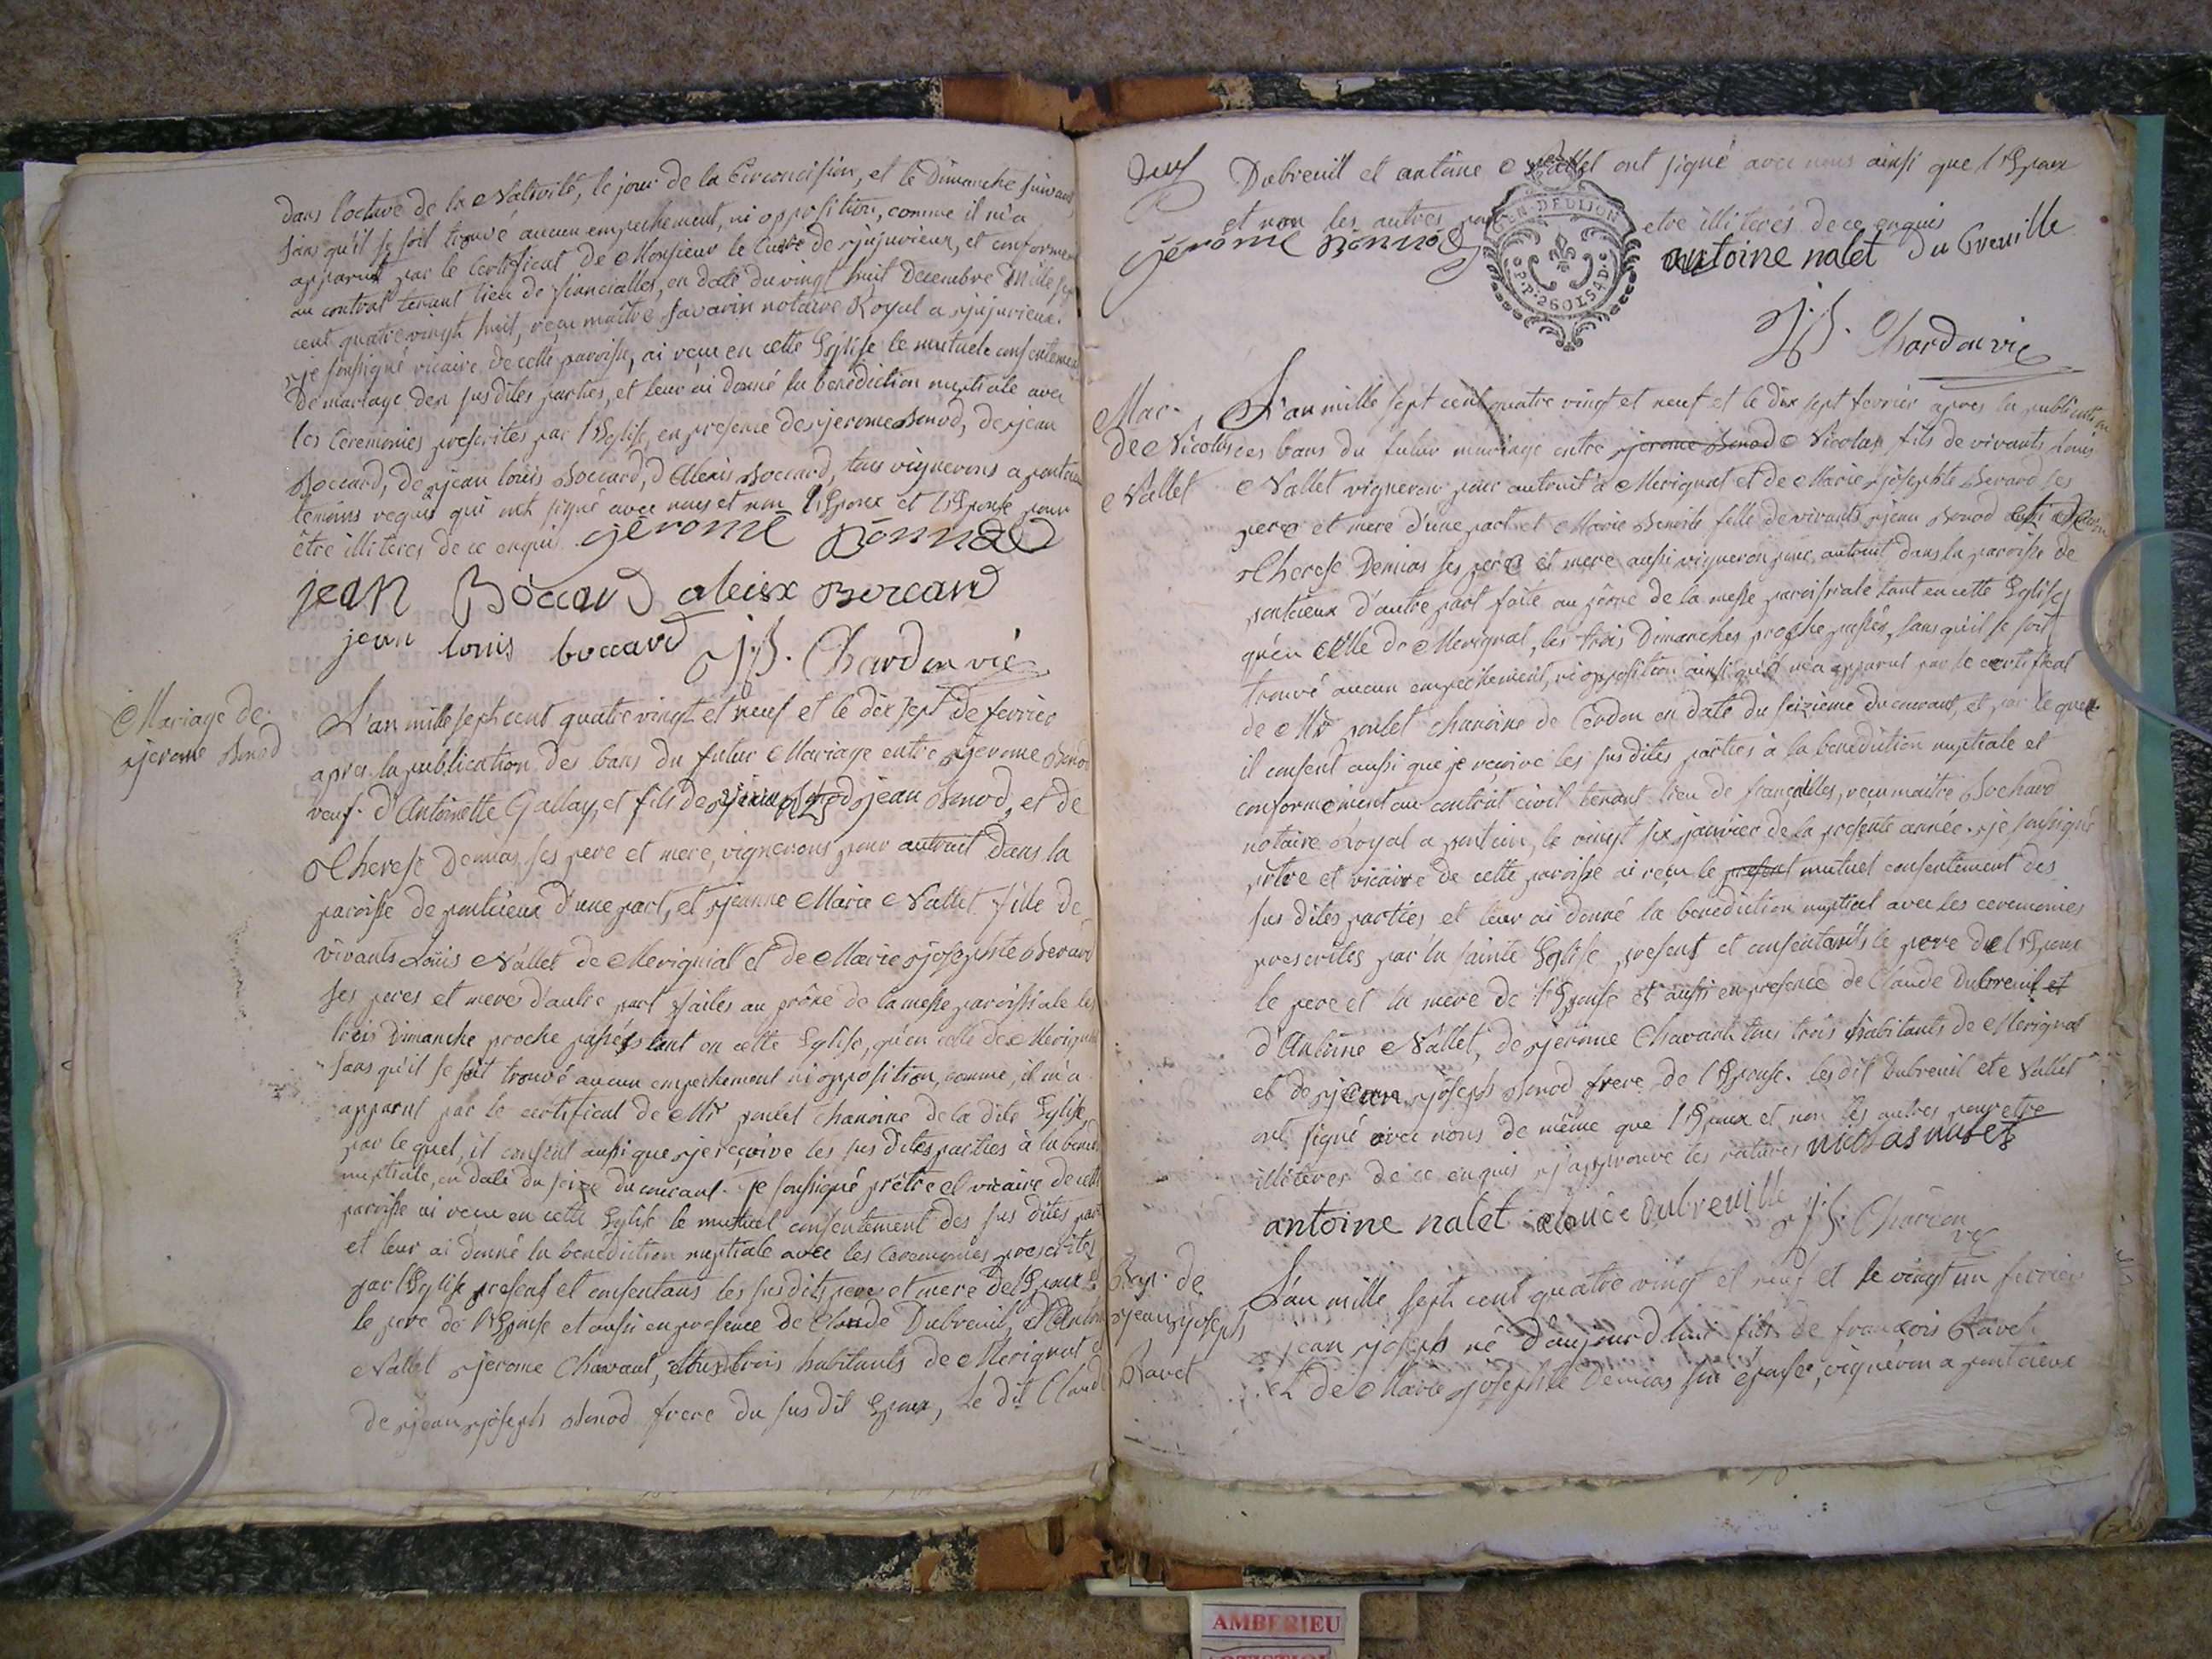 dans l'octave de la Nativité, le jour de la Circoncision, et le Dimanche suivant
sans qu'il se soit trouvé aucun empechement, ni opposition, comme il m'a
apparut par le Certificat de Monsieur le Curé de jujurieux, et conforme
au contrat tenant lieu de fiancialles, en date du vingt huit Decembre Mille sept
cent quatre vingt huit, reçu maître Savarin notaire Royal a jujurieux.
je soussigné vicaire de cette paroisse, ai reçu en cette Eglise le mutuel consentement
De mariage des sus dites parties, et leur ai donné la benediction nuptiale avec
les Ceremonies prescrites par l'Eglise, en presence de jerome Benod, de jean
Boccard, de jean louis Boccard, d'Alexis Boccard, tous vignerons a pontcieu
temoins requis qui ont signé avec nous et non l'Epoux et l'Epouse pour
être illiteres de ce enquis. jérome Bennod
jean Boccard aleisx Boccard
jean louis boccard J.B. Chardon vic
Mariage de
jerome Benod
L'an mille sept cent quatre vingt et neuf et le dix sept de fevrier
apres la publication des bans du futur Mariage entre jerome Benod
veuf d'Antoinette Gallay, et fils de jean Benod, et de
Therese Demias ses pere et mere, vignerons pour autruit dans la
paroisse de pontcieux d'une part, et jeanne Marie Nallet fille de
vivants Louis Nallet de Merignat et de Marie josephte Berard
ses peres et mere d'autre part faites au prône de la messe paroissiale les
trois Dimanche proche passés tant en cette Eglise, qu'en celle de Merignat
sans qu'il se soit trouvé aucun empechement ni opposition, comme, il m'a
apparut par le certificat de Mr poulet Chanoine de la dite Eglise,
par lequel, il consent aussi que je reçoive les sus dites parties à la bened
nuptiale, en date du seize du courant. je soussigné prêtre et vicaire de cette
paroisse ai reçu en cette Eglise le mutuel consentement des sus dites part
et leur ai donné la benediction nuptiale avec les Ceremonies prescrites
par l'Eglise presens et consentans les susdits pere et mere de l'Epoux et
le pere de l'Epouse et aussi en presence de Claude Dubreuil, d'Antoine
Nallet jerome Chavant, tous trois habitants de Merignat et
de jean joseph Benod frere du sus dit Epoux, Le dit Claude
Dubreuil et antoine Nallet ont signé avec nous ainsi que l'Epoux
et non les autres pour etre illiteres de ce enquis
GEN. DE DIJON
P.P. 2 SOLS
jérome Bennod antoine nalet du breuille
J.B. Chardon vic
Mar.
de Nicolas
Nallet
L'an mille sept cent quatre vingt et neuf et le dix sept fevrier apres la publication
des bans du futur mariage entre jerome Benod Nicolas fils de vivants Louis
Nallet vigneron pour autruit à Merignat et de Marie josephte Berard ses
pere et mere d'une part et Marie Benoite fille de vivants jean Benod
Therese Demias ses peres et mere aussi vigneron pour autruit dans la paroisse de
pontcieux d'autre part faite au prône de la messe paroissiale tant en cette Eglise
qu'en celle de Merignat, les trois Dimanches proche passés, sans qu'il se soit
trouvé aucun empechement, ni opposition ainsi qu'il m'a apparut par le certificat
de Mr poulet Chanoine de Cerdon en date du seizieme du courant, et par lequel
il consent aussi que je reçoive les sus dites parties à la benediction nuptiale et
conformement au contrat civil tenant lieu de fiançailles, reçu maître Bochard
notaire Royal a pontcieu, le vingt six janvier de la presente année. je soussigné
prêtre et vicaire de cette paroisse ai reçu le present mutuel consentement des
sus dites parties et leur ai donné la benediction nuptial avec les ceremonies
prescrites par la sainte Eglise presens et consentants le pere de l'Epoux
le pere et la mere de l'Epouse et aussi en presence de Claude Dubreuil et
d'Antoine Nallet, de jerome Chavant tous trois habitants de Merignat
et de jean joseph Benod frere de l'Epouse. Les dit Dubreuil et Nallet
ont signé avec nous de même que l'Epoux et non les autres pour etre
illiteres de ce enquis j'approuve les ratures nicolas nalet
antoine nalet claude dubreuille J.B. Chardon vic
Bap. de
jean joseph
Ravet
L'an mille sept cent quatre vingt et neuf et le vingt un fevrier
jean joseph né d'aujourd'hui fils de françois Ravet
et de Marie josephte Demias sur epouse, vigneron a pontcieux
AMBERIEU